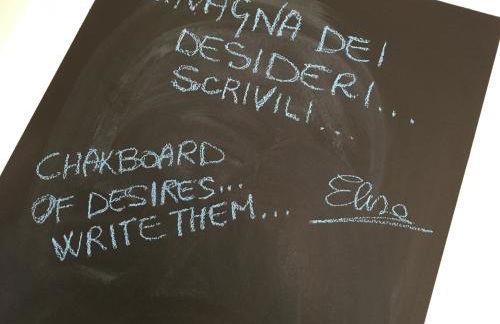 AVAGNA DEI
DESIDERI...
SCRIVILI...
CHAKBOARD
OF DESIRES...
WRITE THEM...
Elisa